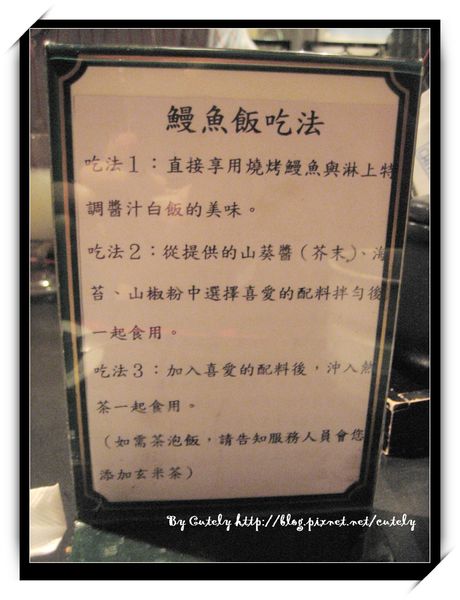 鰻魚飯吃法
吃法1：直接享用燒烤鰻魚與淋上特
調醬汁白飯的美味。
吃法2：從提供的山葵醬（芥末）、海
苔、山椒粉中選擇喜愛的配料拌勻後
一起食用。
吃法3：加入喜愛的配料後，沖入熱
茶一起食用。
（如需茶泡飯，請告知服務人員會您
添加玄米茶）
By Cutely http://blog.pixnet.net/cutely